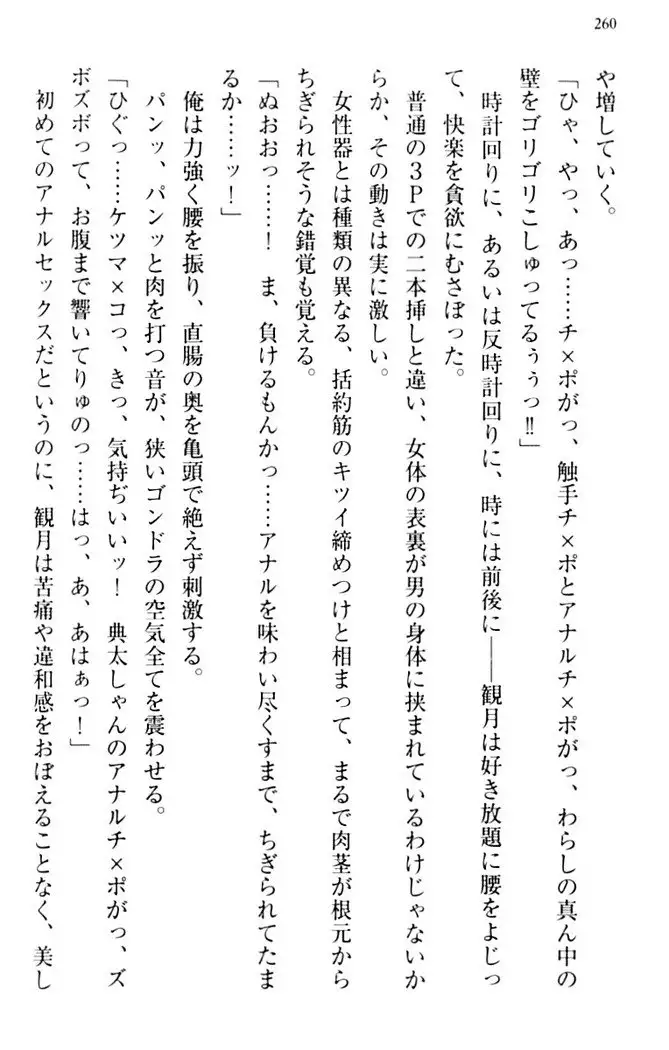 260
や増していく。
「ひゃ、やっ、あっ……チ×ポがっ、触手チ×ポとアナルチ×ポがっ、わらしの真ん中の
壁をゴリゴリこしゅってるぅぅっ!!」
時計回りに、あるいは反時計回りに、時には前後に――観月は好き放題に腰をよじっ
て、快楽を貪欲にむさぼった。
普通の3Pでの二本挿しと違い、女体の表裏が男の身体に挟まれているわけじゃないか
らか、その動きは実に激しい。
女性器とは種類の異なる、括約筋のキツイ締めつけと相まって、まるで肉茎が根元から
ちぎられそうな錯覚も覚える。
「ぬおおっ……！　ま、負けるもんかっ……アナルを味わい尽くすまで、ちぎられてたま
るか……ッ！」
俺は力強く腰を振り、直腸の奥を亀頭で絶えず刺激する。
パンッ、パンッと肉を打つ音が、狭いゴンドラの空気全てを震わせる。
「ひぐっ……ケツマ×コっ、きっ、気持ぢいいッ！　典太しゃんのアナルチ×ポがっ、ズ
ボズボって、お腹まで響いてりゅのっ……はっ、あ、あはぁっ！」
初めてのアナルセックスだというのに、観月は苦痛や違和感をおぼえることなく、美し